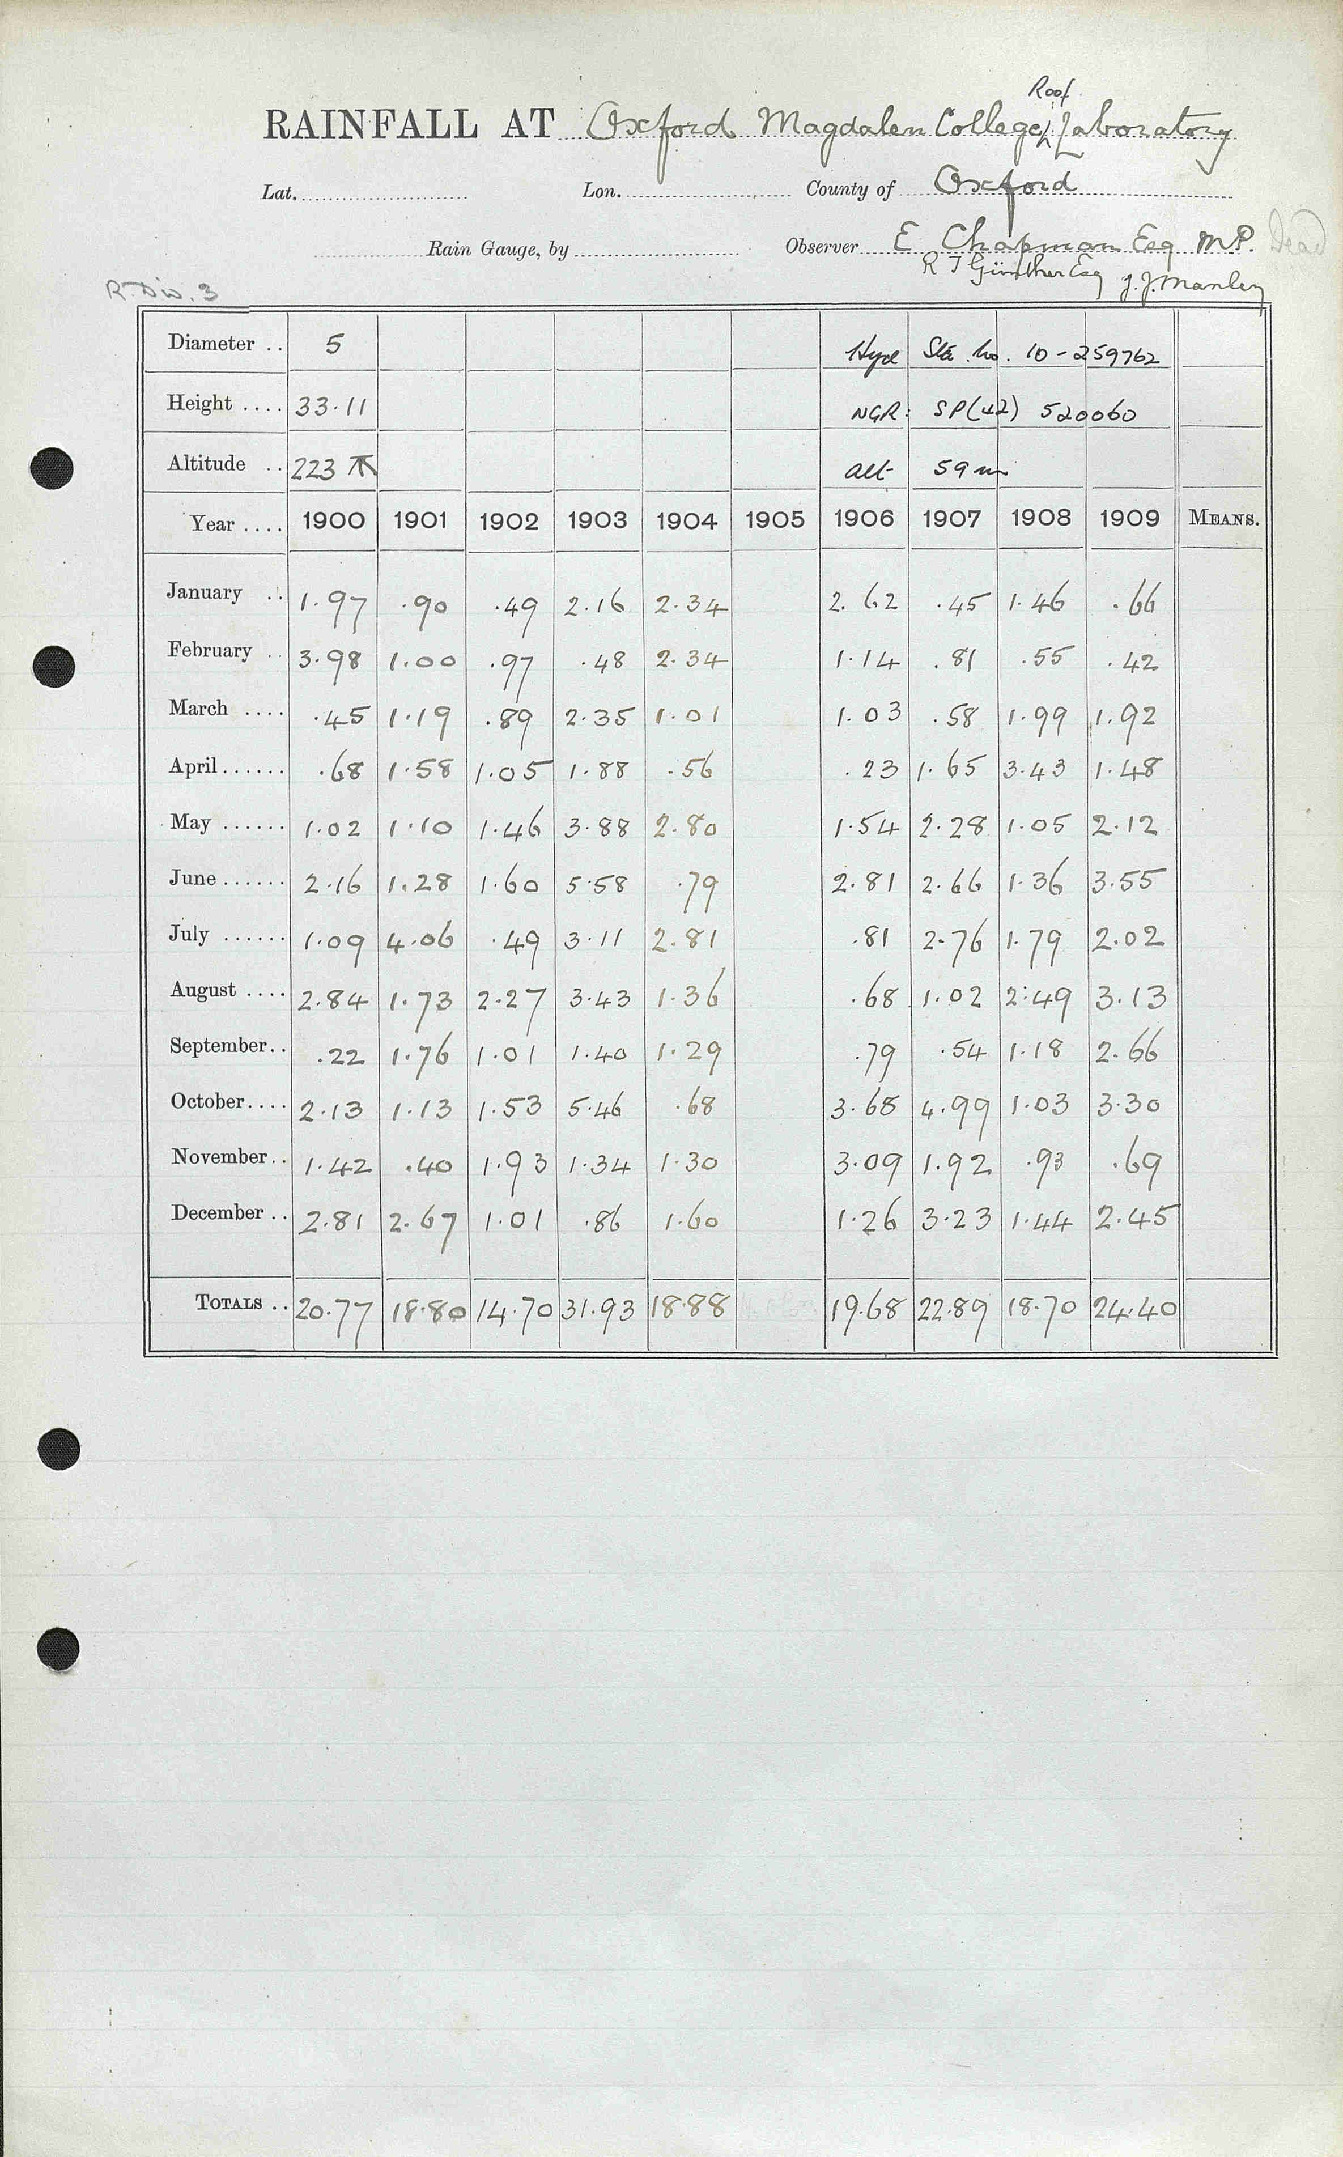 Roof
RAINFALL AT Oxford Magdalen College Laboratory
Lat. Lon. County of Oxford
Rain Gauge, by Observer E Chapman Esq MP. Dead
R T Günther Esq J. J. Manley
R. Div. 3
Diameter .. 5 Hyd Sta. No. 10-259762
Height .... 33.11 NGR: SP(42) 520060
Altitude .. 223 ⊼ alt 59 m
Year .... 1900 1901 1902 1903 1904 1905 1906 1907 1908 1909 MEANS.
January .. 1.97 .90 .49 2.16 2.34 2.62 .45 1.46 .66
February .. 3.98 1.00 .97 .48 2.34 1.14 .81 .55 .42
March .... .45 1.19 .89 2.35 1.01 1.03 .58 1.99 1.92
April ...... .68 1.58 1.05 1.88 .56 .23 1.65 3.43 1.48
May ...... 1.02 1.10 1.46 3.88 2.80 1.54 2.28 1.05 2.12
June ...... 2.16 1.28 1.60 5.58 .79 2.81 2.66 1.36 3.55
July ...... 1.09 4.06 .49 3.11 2.81 .81 2.76 1.79 2.02
August .... 2.84 1.73 2.27 3.43 1.36 .68 1.02 2.49 3.13
September .. .22 1.76 1.01 1.40 1.29 .79 .54 1.18 2.66
October .... 2.13 1.13 1.53 5.46 .68 3.68 4.99 1.03 3.30
November .. 1.42 .40 1.93 1.34 1.30 3.09 1.92 .93 .69
December .. 2.81 2.67 1.01 .86 1.60 1.26 3.23 1.44 2.45
TOTALS .. 20.77 18.80 14.70 31.93 18.88 19.68 22.89 18.70 24.40